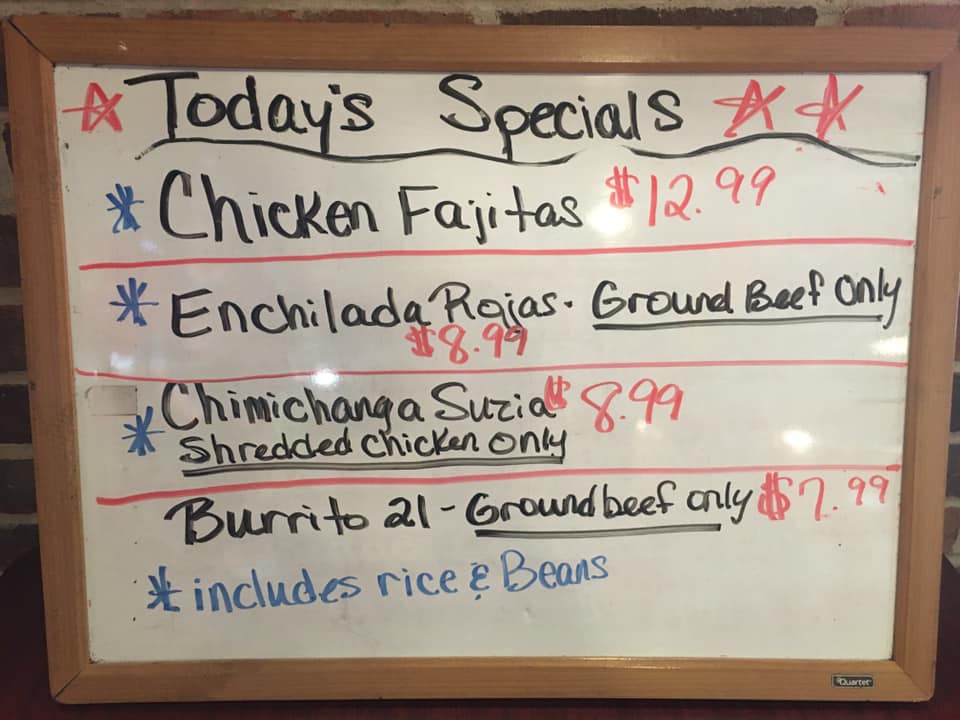 ☆ Today's Specials ☆ ☆
* Chicken Fajitas $12.99
* Enchilada Rojas. Ground Beef Only
$8.99
* Chimichanga Suzia $8.99
Shredded Chicken Only
Burrito 21 - Ground beef only $7.99
* includes rice & Beans
Quartet